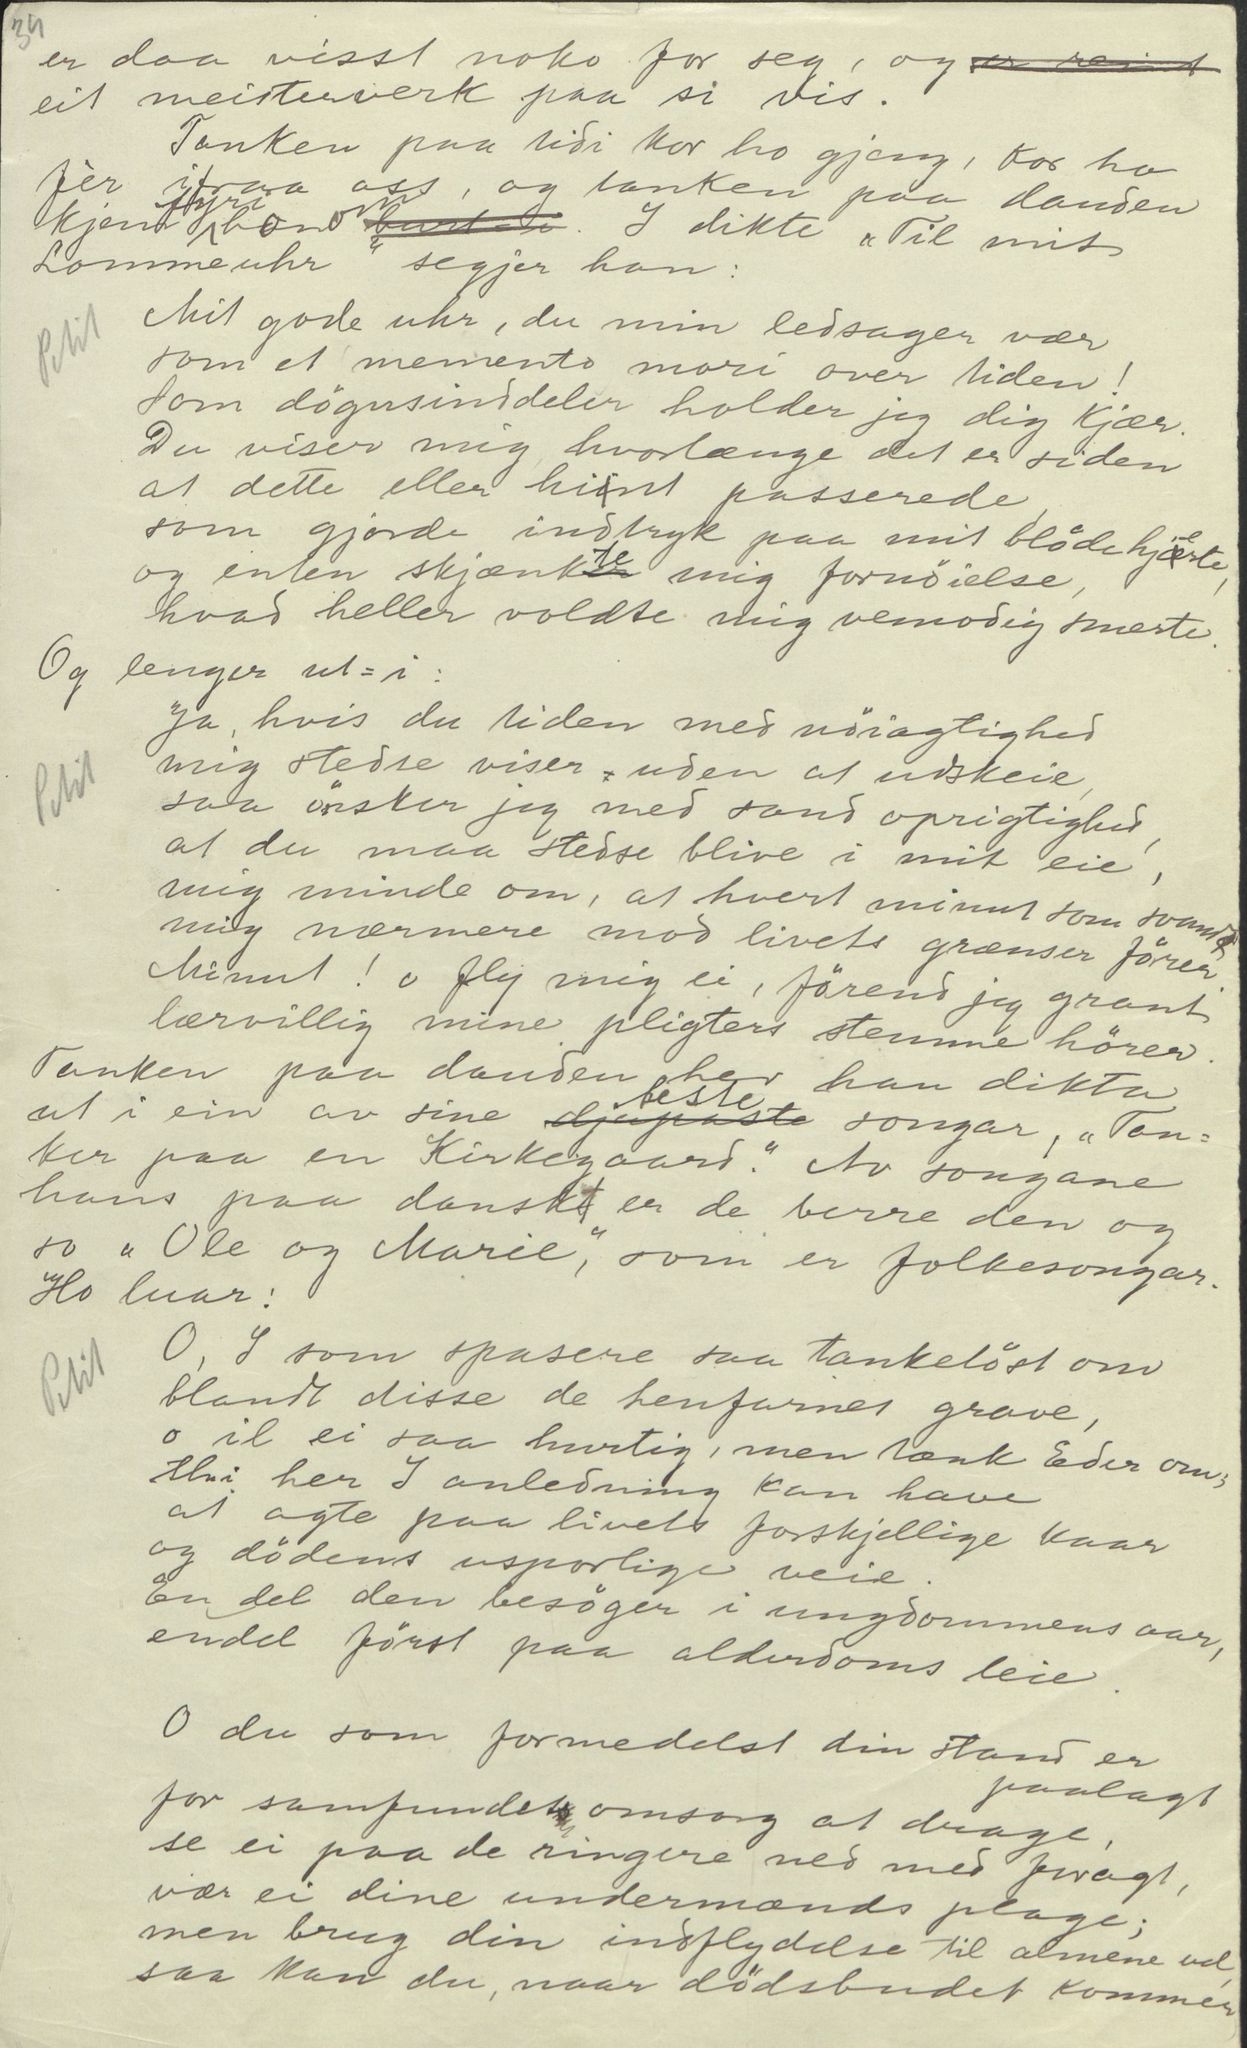 34
er daa visst noko for seg, og er reint
eit meisterverk paa si vis.
Tanken paa tidi kor ho gjeng, kor ho
fèr ifraa oss, og tanken paa dauden
kjem fyri hono om. I dikte „Til mit
Lommeuhr" segjer han:
Petit
Mit gode uhr, du min ledsager vær
som et memento mori over tiden!
Som dögnsinddeler holder jeg dig kjær.
Du viser mig, hvorlænge det er siden
at dette eller hint passerede,
som gjorde indtryk paa mit blöde hjerte,
og enten skjænkte mig fornöielse,
hvad heller voldte mig vemodig smerte.
Og lenger ut=i:
Petit
Ja, hvis du tiden med nöiagtighed
mig stedse viser, uden at udskeie,
saa önsker jeg med sand oprigtighed,
at du maa stedse blive i mit eie,
mig minde om, at hvert minut som svandt
mig nærmere mod livets grænser förer.
Minut! o fly mig ei, förend jeg grant
lærvillig mine pligters stemme hörer.
Tanken paa dauden hev han dikta
ut i ein av sine djupaste beste songar, „Tan=
ker paa en Kirkegaard." Av songane
hans paa dansk er de berre den og
so „Ole og Marie", som er folkesongar.
Ho luar:
Petit
O, I som spasere saa tankelöst om
blandt disse de henfarnes grave,
o il ei saa hurtig, men tænk Eder om;
thi her I anledning kan have
at agte paa livets forskjellige kaar
og dödens usporlige veie.
En del den besöger i ungdommens aar,
endel först paa alderdoms leie.
O du som formedelst din stand er
paalagt
for samfundet omsorg at drage,
se ei paa de ringere ned med foragt,
vær ei dine undermænds plage;
men brug din indflydelse til almene vel,
saa kan du, naar dödsbudet kommer